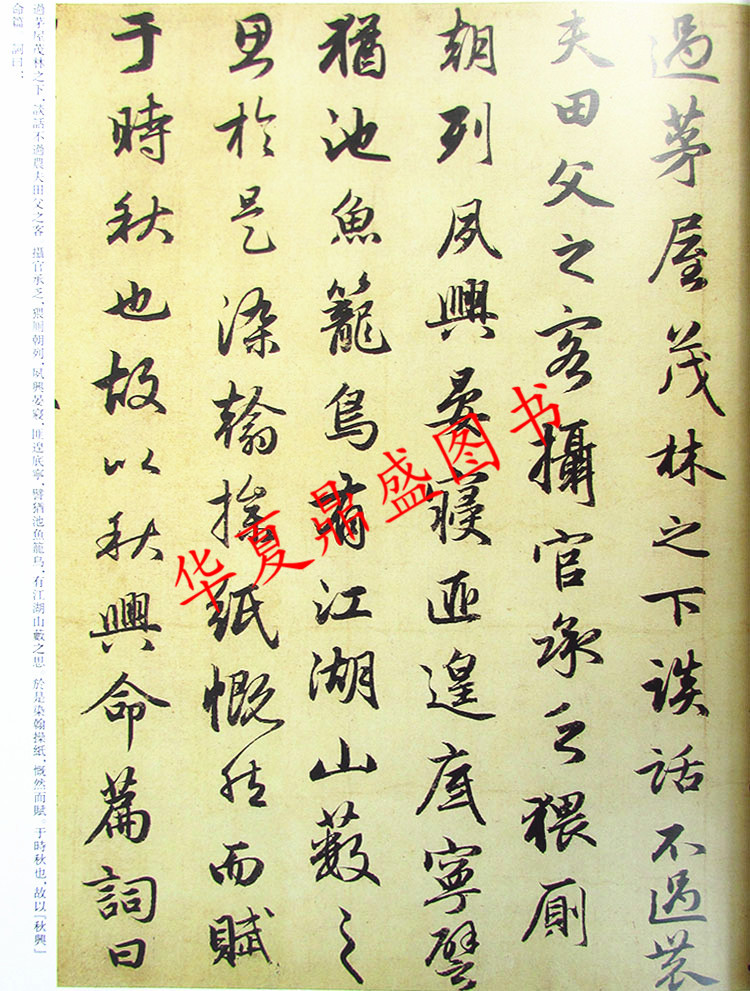 過茅屋茂林之下談話不過農
夫田父之客攝官承乏猥廁
朝列夙興晏寢匪遑底寧譬
猶池魚籠鳥有江湖山藪之
思於是染翰操紙慨然而賦
于時秋也故以秋興命篇詞曰
過茅屋茂林之下、談話不過農夫田父之客 攝官承乏、猥厠朝列、夙興晏寢、匪遑底寧、譬猶池魚籠鳥、有江湖山藪之思 於是染翰操紙、慨然而賦 于時秋也、故以「秋興」
命篇 詞曰：
华夏鼎盛图书